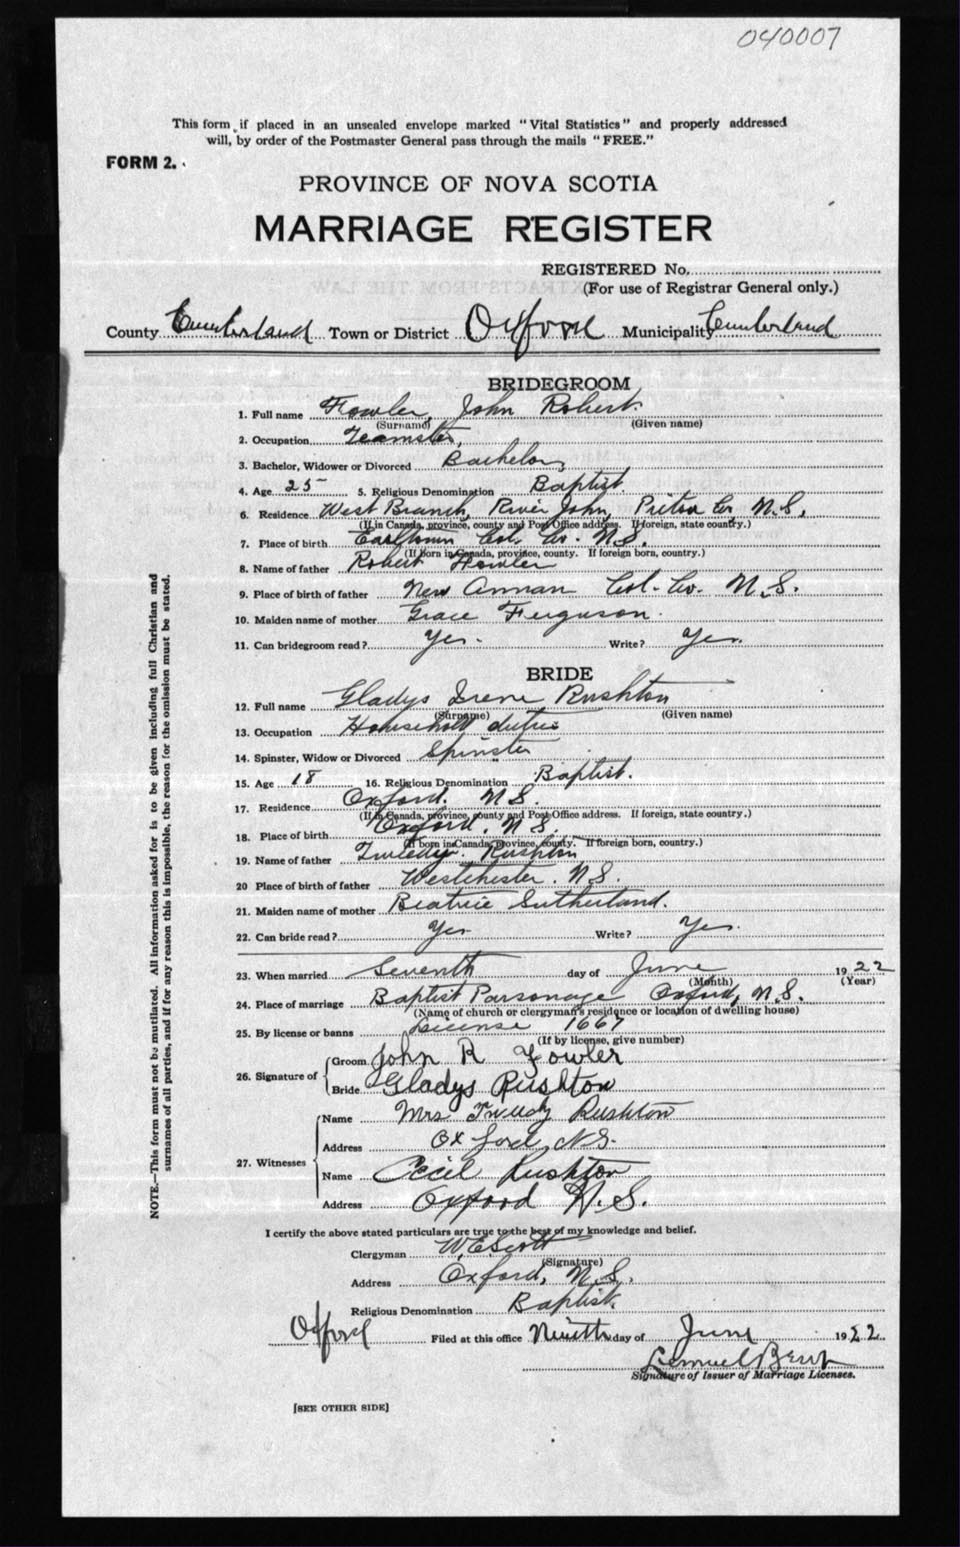 040007
This form if placed in an unsealed envelope marked "Vital Statistics" and properly addressed
will, by order of the Postmaster General pass through the mails "FREE."
FORM 2.
PROVINCE OF NOVA SCOTIA
MARRIAGE REGISTER
REGISTERED No.
(For use of Registrar General only.)
County Cumberland Town or District Oxford Municipality Cumberland
BRIDEGROOM
1. Full name Fowler, John Robert.
(Surname) (Given name)
2. Occupation Teamster,
3. Bachelor, Widower or Divorced Bachelor,
4. Age 25 5. Religious Denomination Baptist.
6. Residence West Branch, River John, Pictou Co, N.S.
(If in Canada, province, county and Post Office address. If foreign, state country.)
7. Place of birth Earltown Col. Co. N.S.
(If born in Canada, province, county. If foreign born, country.)
8. Name of father Robert Fowler
9. Place of birth of father New Annan Col. Co. N.S.
10. Maiden name of mother Grace Ferguson.
11. Can bridegroom read? Yes. Write? Yes.
BRIDE
12. Full name Gladys Irene Rushton
(Surname) (Given name)
13. Occupation Household duties
14. Spinster, Widow or Divorced Spinster
15. Age 18 16. Religious Denomination Baptist.
17. Residence Oxford. N.S.
(If in Canada, province, county and Post Office address. If foreign, state country.)
18. Place of birth Oxford, N.S.
(If born in Canada, province, county. If foreign born, country.)
19. Name of father Rushton
20 Place of birth of father Westchester. N.S.
21. Maiden name of mother Beatrice Sutherland.
22. Can bride read? Yes Write? Yes.
23. When married Seventh day of June 1922
(Month) (Year)
24. Place of marriage Baptist Parsonage Oxford, N.S.
(Name of church or clergyman's residence or location of dwelling house)
25. By license or banns License 1667
(If by license, give number)
26. Signature of Groom John R Fowler
Bride Gladys Rushton
27. Witnesses Name Mrs Rushton
Address Oxford N.S.
Name Cecil Rushton
Address Oxford N.S.
I certify the above stated particulars are true to the best of my knowledge and belief.
Clergyman W.E. Scott
(Signature)
Address Oxford, N.S.
Religious Denomination Baptist.
Oxford Filed at this office Ninth day of June 1922
Lemuel
Signature of Issuer of Marriage Licenses.
[SEE OTHER SIDE]
NOTE.—This form must not be mutilated. All information asked for is to be given including full Christian and
surnames of all parties, and if for any reason this is impossible, the reason for the omission must be stated.